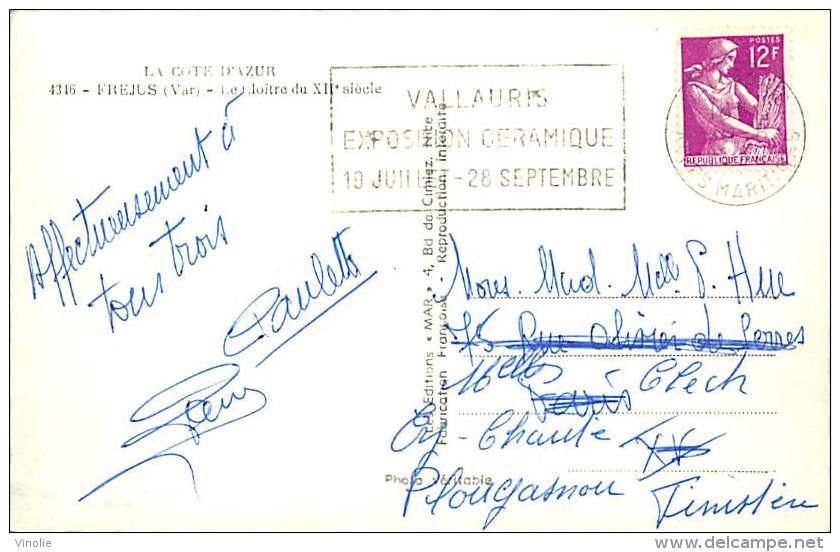 LA COTE D'AZUR
4316 - FREJUS (Var) - Le Cloître du XIIe siècle
VALLAURIS
EXPOSITION CERAMIQUE
19 JUILLET - 28 SEPTEMBRE
POSTES
12F
REPUBLIQUE FRANÇAISE
MARITIMES
Affectueusement à
tous trois
Paulette
Les Editions « MAR » 4, Bd de Cimiez, Nice
Fabrication Française - Reproduction interdite
Mons. Mad. Mell. P. Hue
75 Rue Olivier de Serres
Melles Clech
Paris XV
Ty-Chante
Plougasnou Finistère
Photo Véritable
Vinolie
delcampe.net